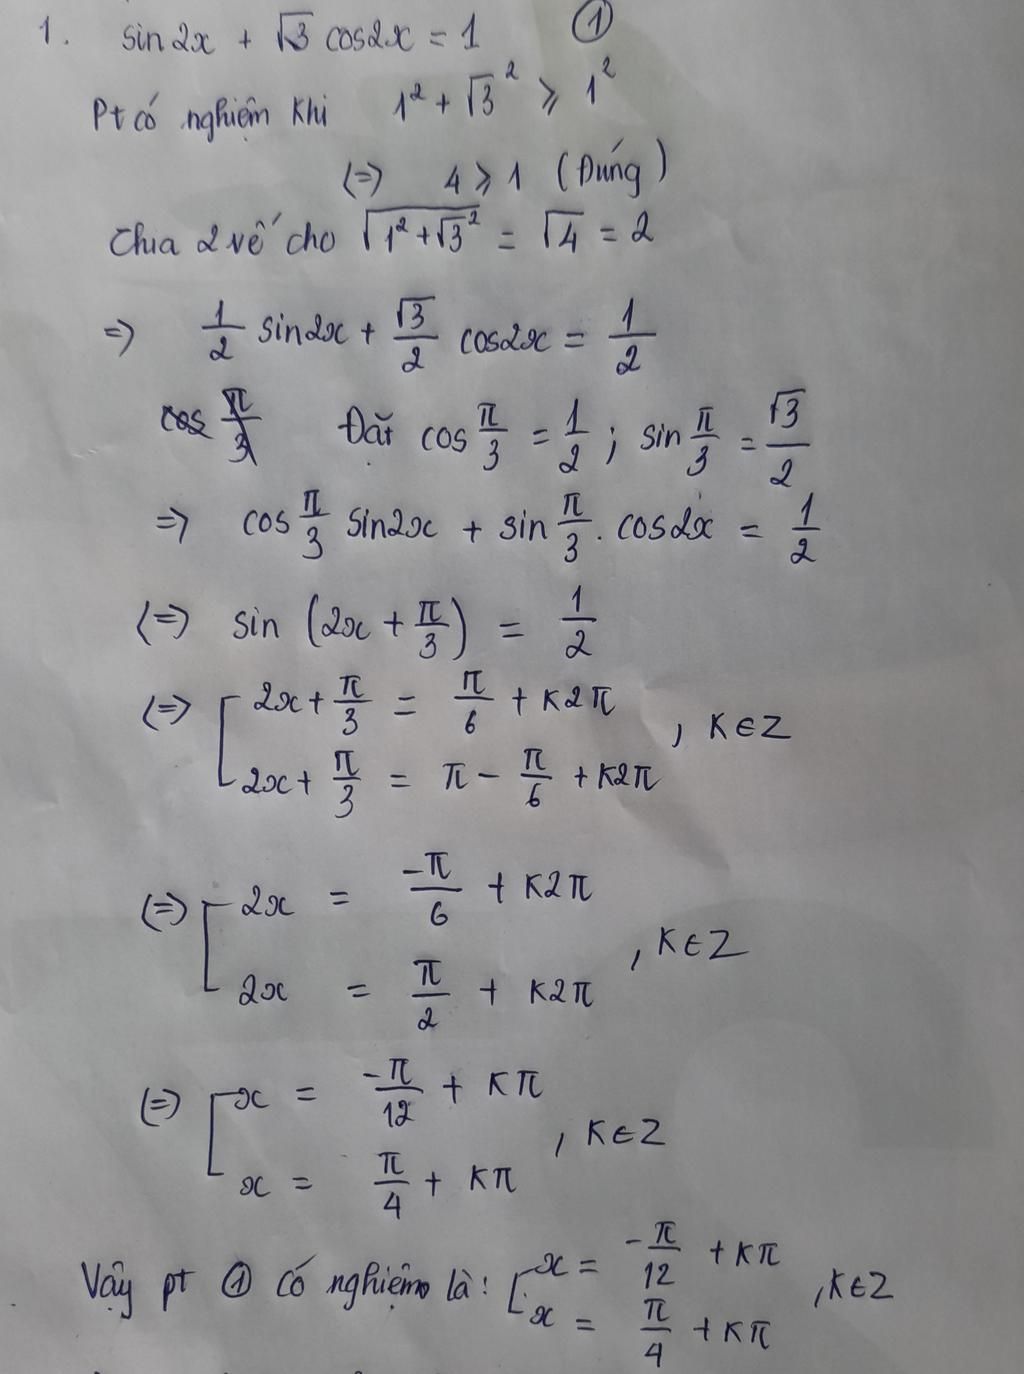 1. sin2x + √3 cos2x = 1 ①
Pt có nghiệm khi 1² + √3² ⩾ 1²
(=) 4 ⩾ 1 (Đúng)
Chia 2 vế cho √(1² + √3²) = √4 = 2
=> 1/2 sin2x + √3/2 cos2x = 1/2
Đặt cos π/3 = 1/2 ; sin π/3 = √3/2
=> cos π/3 sin2x + sin π/3 . cos2x = 1/2
(=) sin (2x + π/3) = 1/2
(=) [ 2x + π/3 = π/6 + K2π
2x + π/3 = π - π/6 + K2π , K∈Z
(=) [ 2x = -π/6 + K2π
2x = π/2 + K2π , K∈Z
(=) [ x = -π/12 + Kπ
x = π/4 + Kπ , K∈Z
Vậy pt ① có nghiệm là: [ x = -π/12 + Kπ
x = π/4 + Kπ , K∈Z